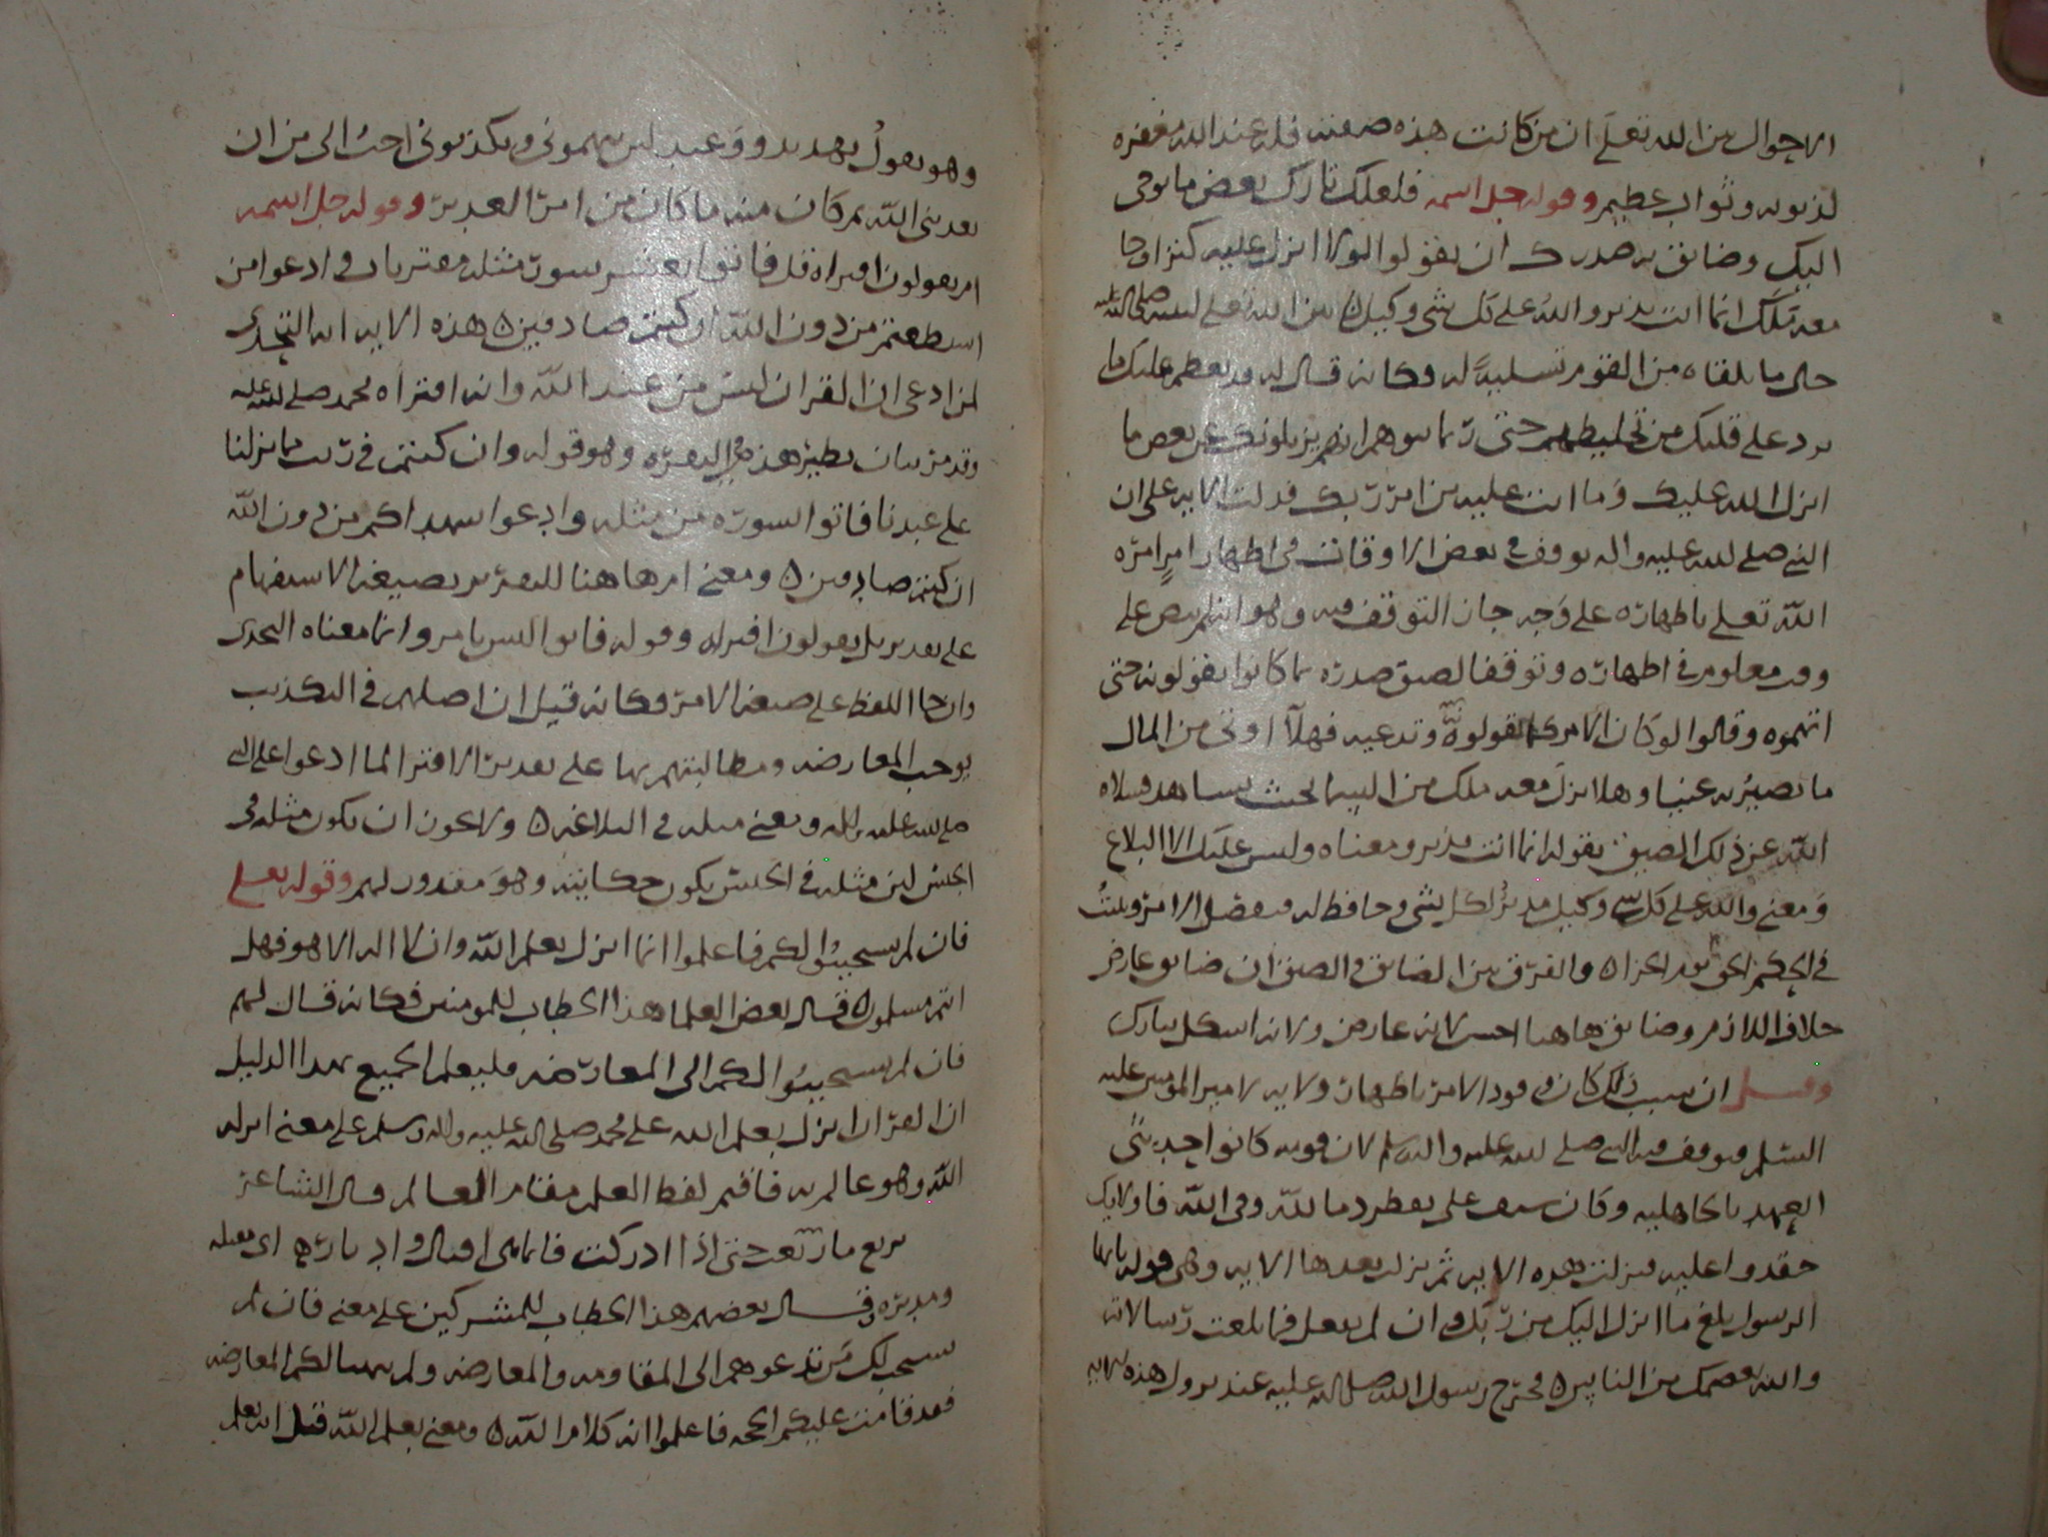 الاحوال من الله تعلى ان من كانت هذه صفته فله عند الله مغفره
لذنوبه وثواب عظيم وقوله جل اسمه فلعلك تارك بعض ما يوحى
اليك وضائق به صدرك ان يقولوا لولا انزل عليه كنز او جا
معه ملك انما انت نذير والله على كل شي وكيل بين الله تعلى لنبيه صلى الله عليه
حال ما يلقاه من القوم تسلية له وكانه قال له قد يعظم عليك ما
يرد على قلبك من تخليطهم حتى ربما توهم انهم يزيلونك عن بعض ما
انزل الله عليك وما انت عليه من امر ربك فدلت الايه على ان
النبي صلى الله عليه واله توقف في بعض الاوقات في اظهار امر امره
الله تعلى باظهاره على وجه جاز التوقف فيه وهو انه لم ينص على
وقت معلوم في اظهاره وتوقفا لضيق صدره بما كانوا يقولونه حتى
اتهموه وقالوا لو كان الامر كما تقولونه وتدعيه فهلا اوتى من المال
ما نصير به غنيا وهلا نزل معه ملك من السما بحيث نشاهده فسلاه
الله عن ذلك الضيق بقوله انما انت نذير ومعناه وليس عليك الا البلاغ
ومعنى والله على كل شي وكيل مدبر لكل شي وحافظ له
في الحكم الحق بعد الجزاء والفرق بين الضائق والضيق ان ضائق عارض
خلاف اللازم وضائق هاهنا احسن لانه عارض ولانه اشكل بتارك
وقيل ان سبب ذلك كان ورود الامر باظهار ولايه لامير المومنين عليه
السلم فتوقف فيه النبي صلى الله عليه واله وسلم لان قومه كانوا حديثى
العهد بالجاهليه وكان سيف على يقطر دما لله وفي الله فاولايك
حقدوا عليه فنزلت هذه الايه ثم نزل بعدها الايه وهي قوله يايها
الرسول بلغ ما انزل اليك من ربك وان لم تفعل فما بلغت رسالاته
والله يعصمك من الناس فخرج رسول الله صلى الله عليه عند نزول هذه الايه
وهو يقول تهديد ووعيد لئن يتهمونى ويكذبونى احب الى من ان
يعذبنى الله ثم كان منه ما كان من امر الغدير وقوله جل اسمه
ام يقولون افتراه قل فاتوا بعشر سور مثله مفتريات وادعوا من
استطعتم من دون الله ان كنتم صادقين هذه الايه ايه التحدى
لمن ادعى ان القران ليس من عند الله وانه افتراه محمد صلى الله عليه
وقد مر بيان نظير هذه في البقره وهو قوله وان كنتم في ريب مما نزلنا
على عبدنا فاتوا بسوره من مثله وادعوا شهداكم من دون الله
ان كنتم صادقين ومعنى ام هاهنا للتقرير بصيغه الاستفهام
على تقدير بل يقولون افتراه وقوله فاتوا ليس بامر وانما معناه التحدى
وان جا اللفظ على صيغه الامر وكانه قيل ان اصلهم في التكذيب
يوجب المعارضه ومطالبتهم بها على تقدير الافترا لما ادعوا على النبي
صلى الله عليه واله ومعنى مثله في البلاغه ولا يجوز ان يكون مثله في
الجنس لان مثله في الجنس يكون حكايته وهو مقدور لهم وقوله تعلى
فان لم يستجيبوا لكم فاعلموا انما انزل بعلم الله وان لا اله الا هو فهل
انتم مسلمون قال بعض العلما هذا الخطاب للمومنين فكانه قال لهم
فان لم يستجيبوا لكم الى المعارضه فليعلم الجميع بهذا الدليل
ان القران انزل بعلم الله على محمد صلى الله عليه واله وسلم على معنى انزله
الله وهو عالم به فاقيم لفظ العلم مقام العالم قال الشاعر
ترتع ما رتعت حتى اذا ادركت فانما هى اقبال وادبار اى مقبله
ومدبره وقال بعضهم هذا الخطاب للمشركين على معنى فان لم
يستجب لكم من تدعوهم الى المقاومه والمعارضه ولم لكم المعارضه
فقد قامت عليكم الحجه فاعلموا انه كلام الله ومعنى بعلم الله قيل انه بعلم